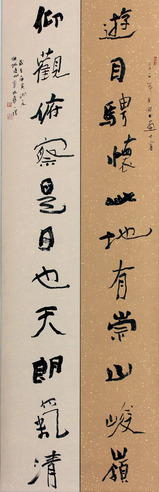 遊目騁懷此地有崇山峻嶺
仰觀俯察是日也天朗氣清